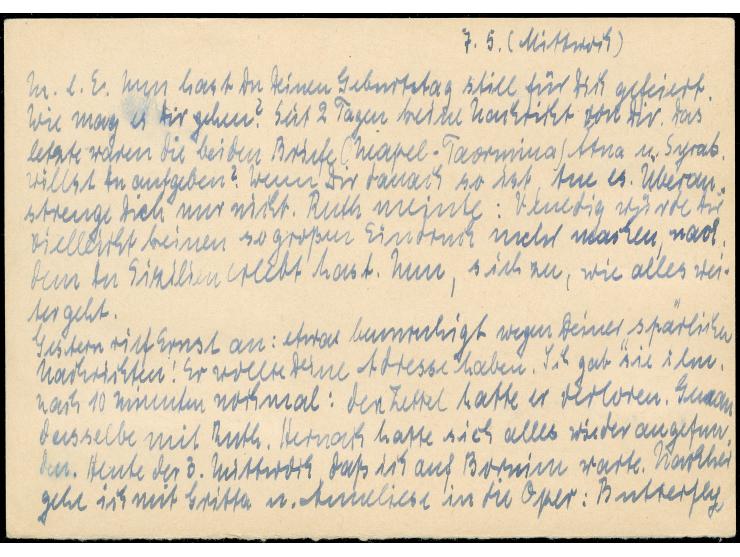 7. 5. (Mittwoch)
M. l. E. Nun hast Du Deinen Geburtstag still für Dich gefeiert.
Wie mag es Dir gehen? Seit 2 Tagen keine Nachricht von Dir. Das
letzte waren die beiden Briefe (Neapel - Taormina) Ätna u. Syrak.
willst Du aufgeben? Wenn Dir danach so ist, tue es. Überan-
strenge Dich nur nicht. Ruth meinte: Venedig würde Dir
vielleicht keinen so großen Eindruck mehr machen, nach-
dem Du Sizilien erlebt hast. Nun, sieh zu, wie alles wei-
tergeht.
Gestern rief Ernst an: etwas beunruhigt wegen Deiner spärlichen
Nachrichten! Er wollte Deine Adresse haben. Ich gab sie ihm.
nach 10 Minuten nochmal: den Zettel hatte er verloren. Genau
dasselbe mit Ruth. Hernach hatte sich alles wieder angefun-
den. Heute der 3. Mittwoch daß ich auf warte. Nachher
gehe ich mit Gritta u. Anneliese in die Oper: Butterfly